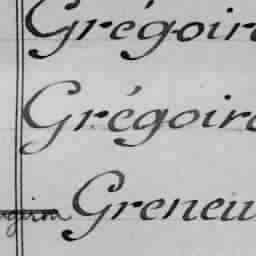 Grégoire
Grégoire
Greneu